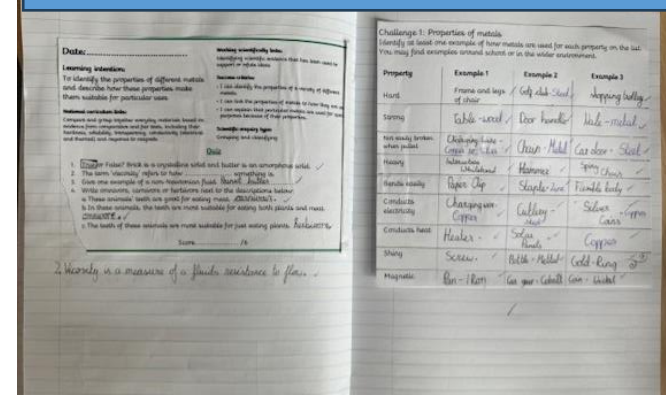 Date:
Learning intention:
To identify the properties of different metals
and describe how these properties make
them suitable for particular uses.
National curriculum links:
Compare and group together everyday materials based on
evidence from comparative and fair tests, including their
hardness, solubility, transparency, conductivity (electrical
and thermal), and response to magnets.
Working scientifically links:
Identifying scientific evidence that has been used to
support or refute ideas
Success criteria:
- I can identify the properties of a variety of different
metals.
- I can link the properties of metals to how they are
- I can explain that particular metals are used for
purposes because of their properties.
Scientific enquiry type:
Comparing and classifying
Quiz
1. True or False? Brick is a crystalline solid and butter is an amorphous solid.
2. The term 'viscosity' refers to how something is.
3. Give one example of a non-newtonian fluid. Peanut butter
4. Write omnivores, carnivores or herbivores next to the descriptions below
a These animals' teeth are good for eating meat. carnivores
b In these animals, the teeth are most suitable for eating both plants and meat.
omnivore
c The teeth of these animals are most suitable for just eating plants. herbivore
Score /6
2. Viscosity is a measure of a fluids resistance to flow.
Challenge 1: Properties of metals
Identify at least one example of how metals are used for each property on the list.
You may find examples around school or in the wider environment.
Property Example 1 Example 2 Example 3
Hard Frame and legs of chair Golf club - Steel Shopping trolley
Strong Table - Door handle - metal
Not easily broken when pulled Charging Chain - Metal Car door - Steel
Heavy Interactive Whiteboard Hammer Chair
Bends easily Paper Clip Staple - Zinc
Conducts electricity Charging wire - Copper Cutlery Silver Coins - Copper
Conducts heat Heater - Solar Panels Copper
Shiny Screw - Bottle - Metal Gold - Ring
Magnetic Pan - Iron Car gear - Cobalt Coin - Nickel